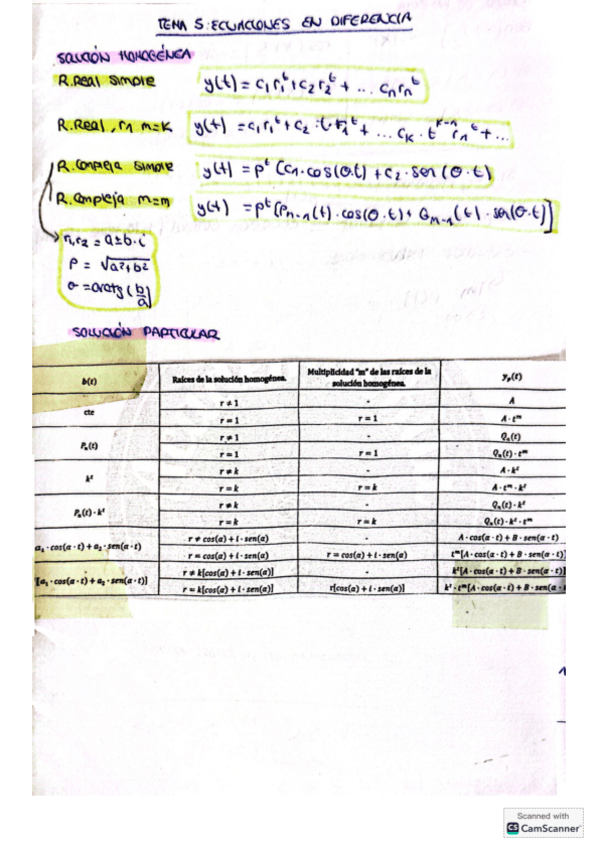 TEMA 5: ECUACIONES EN DIFERENCIA
SOLUCIÓN HOMOGÉNEA
R.Real Simple y(t) = c₁r₁ᵗ + c₂r₂ᵗ + ... cₙrₙᵗ
R.Real, r₁ m=k y(t) = c₁r₁ᵗ + c₂·t·r₁ᵗ + ... cₖ·tᵏ⁻¹r₁ᵗ + ...
R.Compleja Simple y(t) = ρᵗ (c₁·cos(θ·t) + c₂·sen(θ·t)
R.Compleja m=m y(t) = ρᵗ [Pₘ₋₁(t)·cos(θ·t) + Gₘ₋₁(t)·sen(θ·t)]
r₁,r₂ = a±b·i
ρ = √a²+b²
θ = arctg(b/a)
SOLUCIÓN PARTICULAR
b(t) Raíces de la solución homogénea. Multiplicidad "m" de las raíces de la solución homogénea. yₚ(t)
cte r ≠ 1 - A
r = 1 r = 1 A · tᵐ
Pₙ(t) r ≠ 1 - Qₙ(t)
r = 1 r = 1 Qₙ(t) · tᵐ
kᵗ r ≠ k - A · kᵗ
r = k r = k A · tᵐ · kᵗ
Pₙ(t) · kᵗ r ≠ k - Qₙ(t) · kᵗ
r = k r = k Qₙ(t) · kᵗ · tᵐ
a₁ · cos(α · t) + a₂ · sen(α · t) r ≠ cos(α) + i · sen(α) - A · cos(α · t) + B · sen(α · t)
r = cos(α) + i · sen(α) r = cos(α) + i · sen(α) tᵐ[A · cos(α · t) + B · sen(α · t)]
[a₁ · cos(α · t) + a₂ · sen(α · t)] r ≠ k[cos(α) + i · sen(α)] - kᵗ[A · cos(α · t) + B · sen(α · t)]
r = k[cos(α) + i · sen(α)] r[cos(α) + i · sen(α)] kᵗ · tᵐ[A · cos(α · t) + B · sen(α ·
Scanned with
CS CamScanner